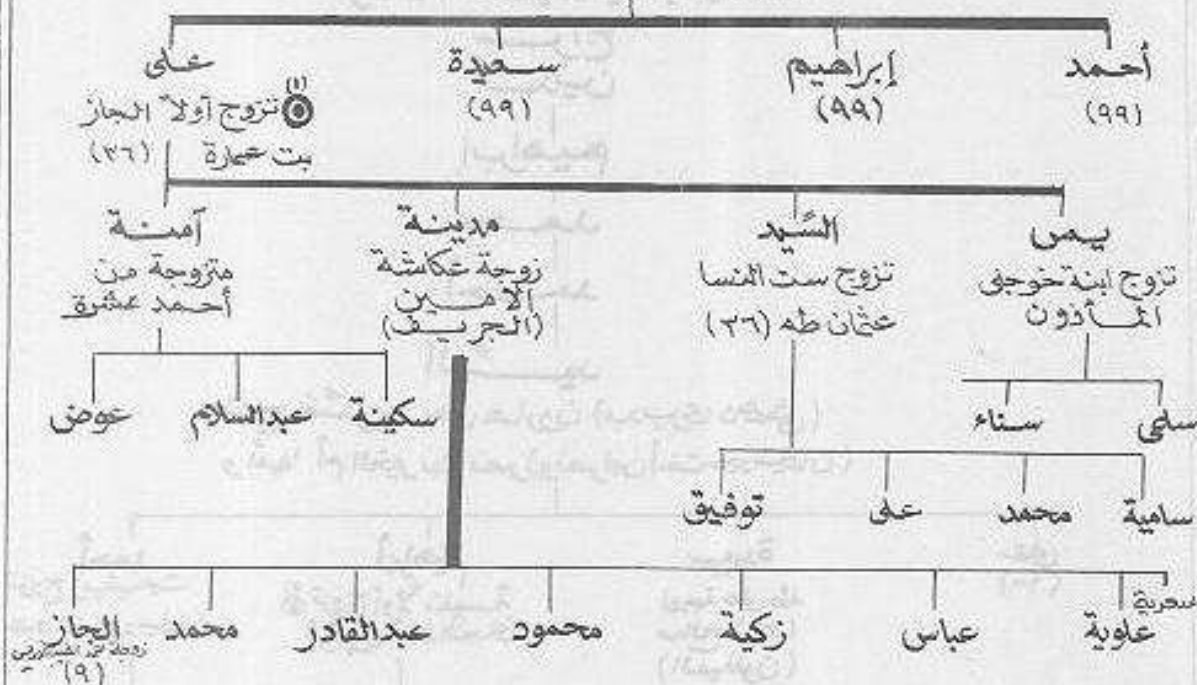 أحمد
(٩٩)
إبراهيم
(٩٩)
سعيدة
(٩٩)
على
(١)
تزوج أولاً الحاز
بت عمارة (٣٦)
يس
تزوج ابنة خوجلى
المأذون
السّيد
تزوج ست النسا
عثمان طه (٣٦)
مدينة
زوجة عكاشة
الأمين
(الجريف)
آمنة
متزوجة من
أحمد عشرة
سلمى
سناء
سكينة
عبدالسلام
عوض
سامية
محمد
على
توفيق
علوية
عباس
زكية
محمود
عبدالقادر
محمد
الحاز
(٩)